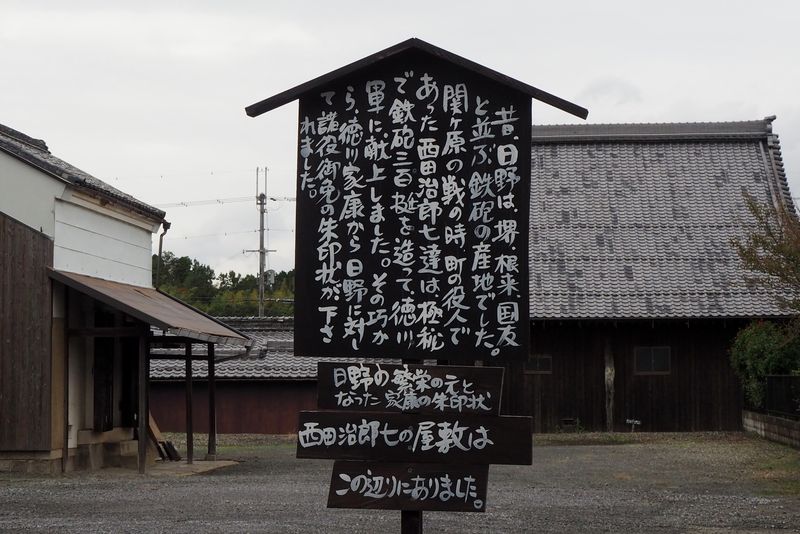 昔、日野は堺、根来、国友
と並ぶ鉄砲の産地でした。
関ヶ原の戦の時、町の役人で
あった西田治郎七達は、極秘
で鉄砲三百挺を造って、徳川
軍に、献上しました。その功か
ら、徳川家康から日野に対し
て諸役御免の朱印状が下さ
れました。
日野の繁栄の元と
なった 家康の朱印状
西田治郎七の屋敷は
この辺りにありました。